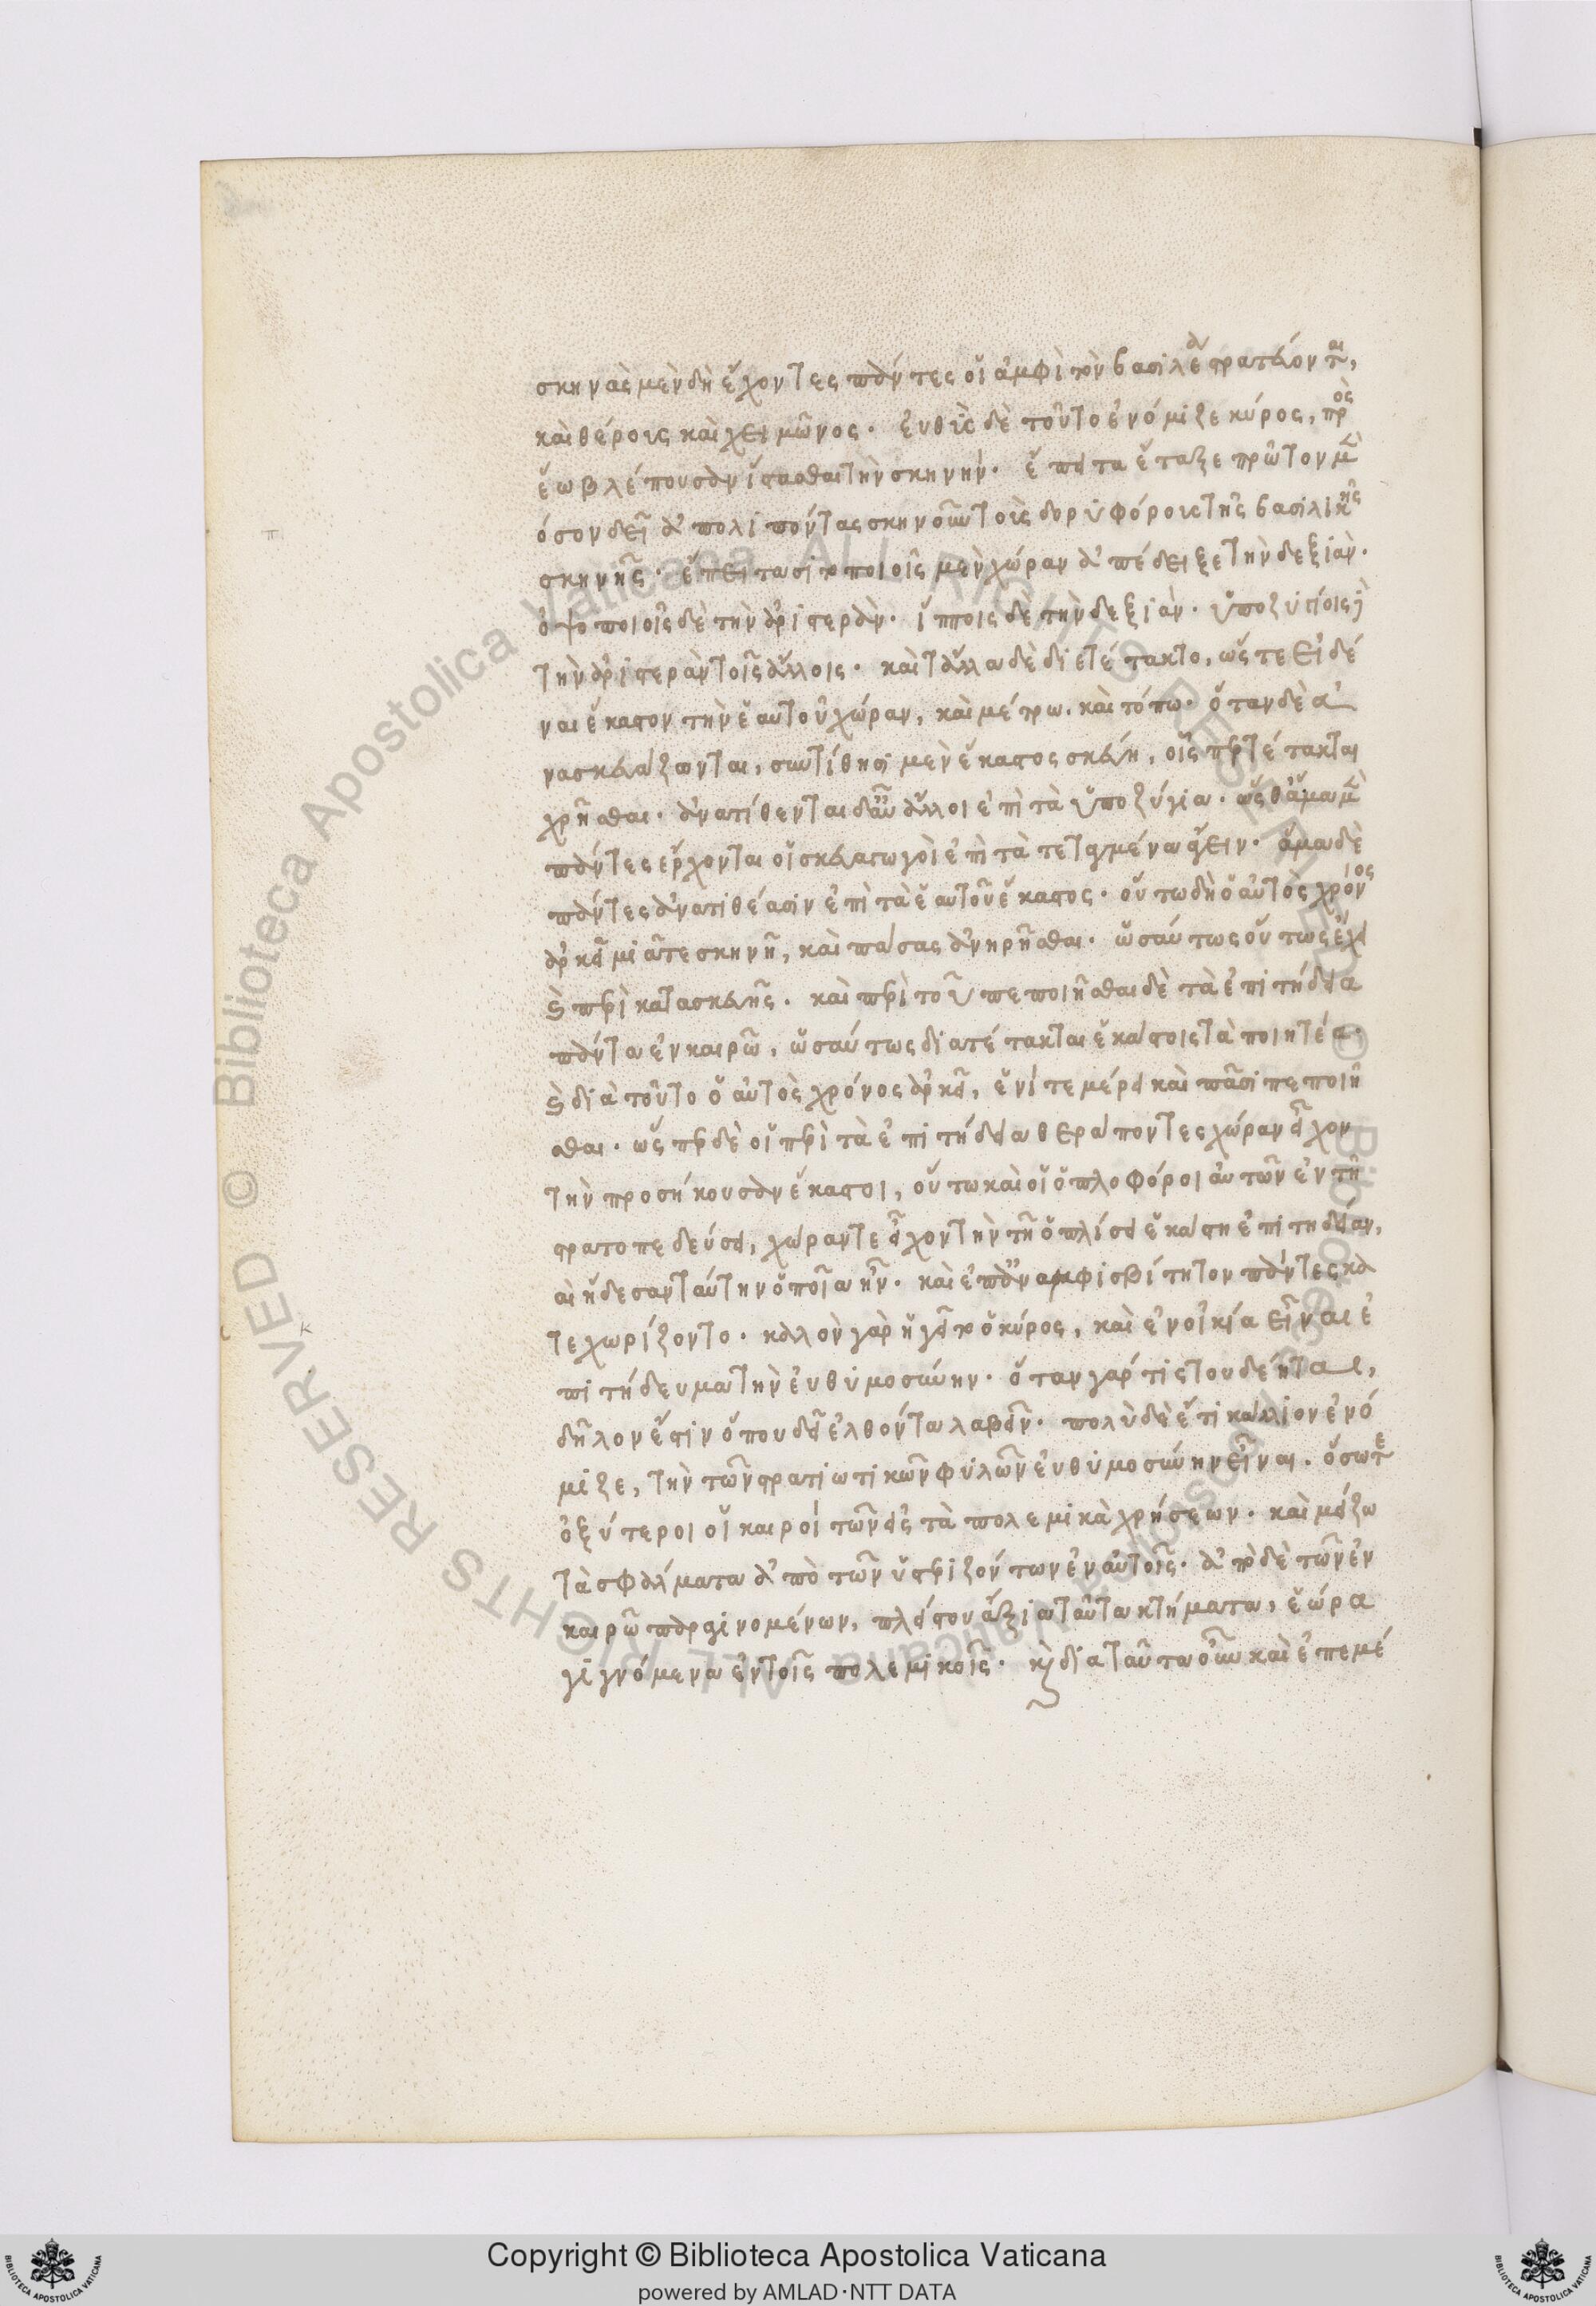 σκηνὰς μὲν δὴ ἔχοντες πάντες οἱ ἀμφὶ τὸν βασιλέα στρατεύονται,
καὶ θέρους καὶ χειμῶνος. εὐθὺς δὲ τοῦτο ἐνόμιζε κύρος, πρὸς
ἕω βλέπουσαν ἵστασθαι τὴν σκηνήν. ἔπειτα ἔταξε πρῶτον μὲν
όσον δεῖ ἀπολιπόντας σκηνοῦν τοὺς δορυφόρους τῆς βασιλικῆς
σκηνῆς. ἔπειτα σιτοποιοῖς μὲν χώραν ἀπέδειξε τὴν δεξιὰν.
ὀψοποιοῖς δὲ τὴν ἀριστερὰν. ἵπποις δὲ τὴν δεξιὰν. ὑποζυγίοις δὲ
τὴν ἀριστερὰν τοῖς ἄλλοις. καὶ τἄλλα δὲ διετέτακτο, ὥστε εἰδέ
ναι ἕκαστον τὴν ἑαυτοῦ χώραν, καὶ μέτρω. καὶ τόπω. ὅταν δὲ ἀ
νασκευάζωνται, συντίθησι μὲν ἕκαστος σκεύη, οἷς περ τέτακται
χρῆσθαι. ἀνατίθενται δ' αὖ ἄλλοι ἐπὶ τὰ ὑποζύγια. ὥσθ' ἅμα μὲν
πάντες ἔρχονται οἱ σκευαγωγοὶ ἐπὶ τὰ τεταγμένα ἄγειν. ἅμα δὲ
πάντες ἀνατιθέασιν ἐπὶ τὰ ἑαυτοῦ ἕκαστος. οὕτω δὴ ὁ αὐτὸς χρόνος
ἀρκεῖ μιᾶ τε σκηνῆ, καὶ πάσας ἀνηρῆσθαι. ὡσαύτως οὕτως ἔχει
καὶ περὶ κατασκευῆς. καὶ περὶ τοῦ πεποιῆσθαι δὲ τὰ ἐπιτήδεια
πάντα ἐν καιρῶ, ὡσαύτως διατέτακται ἑκάστοις τὰ ποιητέα.
καὶ διὰ τοῦτο ὁ αὐτὸς χρόνος ἀρκεῖ, ἑνί τε μέρει καὶ πᾶσι πεποιῆ
σθαι. ὥσπερ δὲ οἱ περὶ τὰ ἐπιτήδεια θεράποντες χώραν εἶχον
τὴν προσήκουσαν ἕκαστοι, οὕτω καὶ οἱ ὁπλοφόροι αὐτῶν ἐν τῆ
στρατοπεδεύσει, χώραν τε εἶχον τὴν τῆ ὁπλίσει ἑκάστη ἐπιτηδείαν,
αὶ ἤδεσαν ταύτην ὁποῖα ἦν. καὶ ἐπ' ἀναμφισβίτητον πάντες κα
τεχωρίζοντο. καλὸν γὰρ ἡγεῖτο ὁ κύρος, καὶ ἐν οἰκία εἶναι ἐ
πιτήδευμα τὴν εὐθυμοσύνην. ὅταν γάρ τίς του δέηται,
δῆλον ἔστιν ὅπου δεῖ ἐλθόντα λαβεῖν. πολὺ δὲ ἔτι κάλλιον ἐνό
μιζε, τὴν τῶν στρατιωτικῶν φυλῶν εὐθυμοσύνην εἶναι. ὅσω τε
ὀξύτεροι οἱ καιροί τῶν εἰς τὰ πολεμικὰ χρήσεων. καὶ μείζω
τὰ σφάλματα ἀπὸ τῶν ὑστεριζόντων ἐν αὐτοῖς. ἀπὸ δὲ τῶν ἐν
καιρῶ παραγινομένων, πλείστου ἄξια ταῦτα κτήματα, ἑώρα
γιγνόμενα ἐν τοῖς πολεμικοῖς. καὶ διὰ ταῦτα οὖν καὶ ἐπεμέ
Copyright © Biblioteca Apostolica Vaticana
powered by AMLAD·NTT DATA